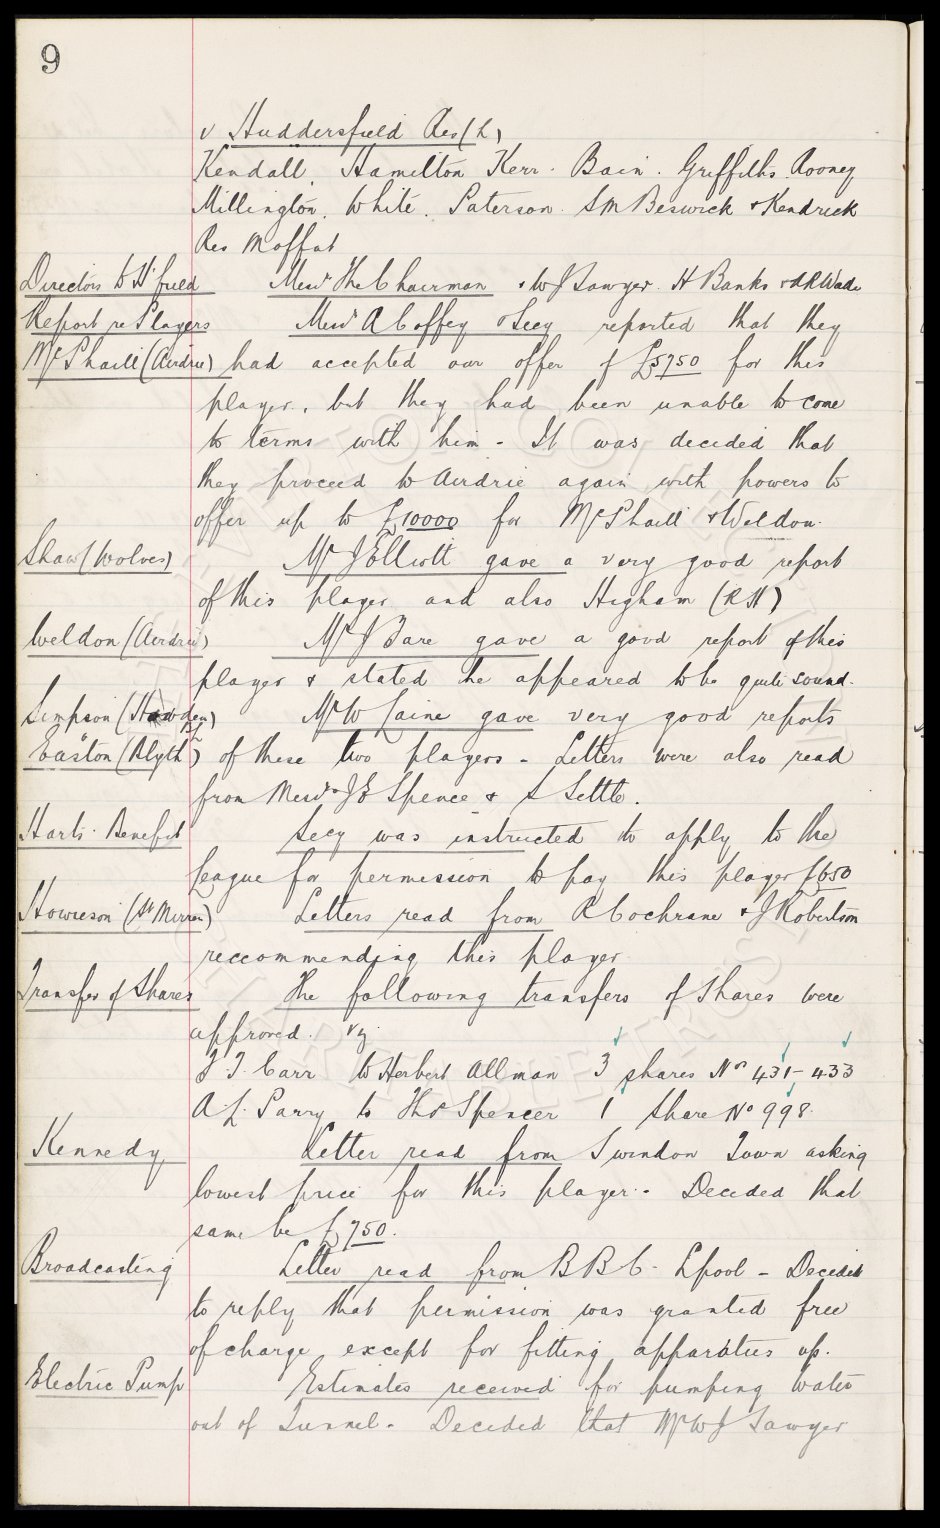 9
v Huddersfield Res (h)
Kendall. Hamilton Kerr. Bain. Griffiths. Rooney
Millington. White. Paterson. S M Beswick & Kendrick
Res Moffat
Directors to H'field Messrs The Chairman & W J Sawyer. H Banks & A R Wade
Report re Players Messrs A Coffey & Secy reported that they
McPhaill (Airdrie) had accepted our offer of £5750 for this
player, but they had been unable to come
to terms with him - It was decided that
they proceed to Airdrie again with powers to
offer up to £10000 for McPhaill & Weldon.
Shaw (Wolves) Mr J Elliott gave a very good report
of this player and also Higham (R H)
Weldon (Airdrie) Mr J Bare gave a good report of this
player & stated he appeared to be quite sound.
Simpson (Hawden) Mr W Caine gave very good reports
Easton (Blyth) of these two players - Letters were also read
from Messrs J E Spence & S Settle.
Harts. Benefit Secy was instructed to apply to the
League for permission to pay this player £650
Howieson (St Mirren) Letters read from R Cochrane & J Robertson
reccommending this player
Transfer of Shares The following transfers of Shares were
approved. viz
J. J. Carr to Herbert Allman 3 shares Nos 431-433
A. L. Parry to Thos Spencer 1 Share No 998.
Kennedy Letter read from Swindon Town asking
lowest price for this player. Decided that
same be £750.
Broadcasting Letter read from B B C - Lpool - Decided
to reply that permission was granted free
of charge except for fitting apparatus up.
Electric Pump Estimates received for pumping water
out of Tunnel. Decided that Mr W J Sawyer